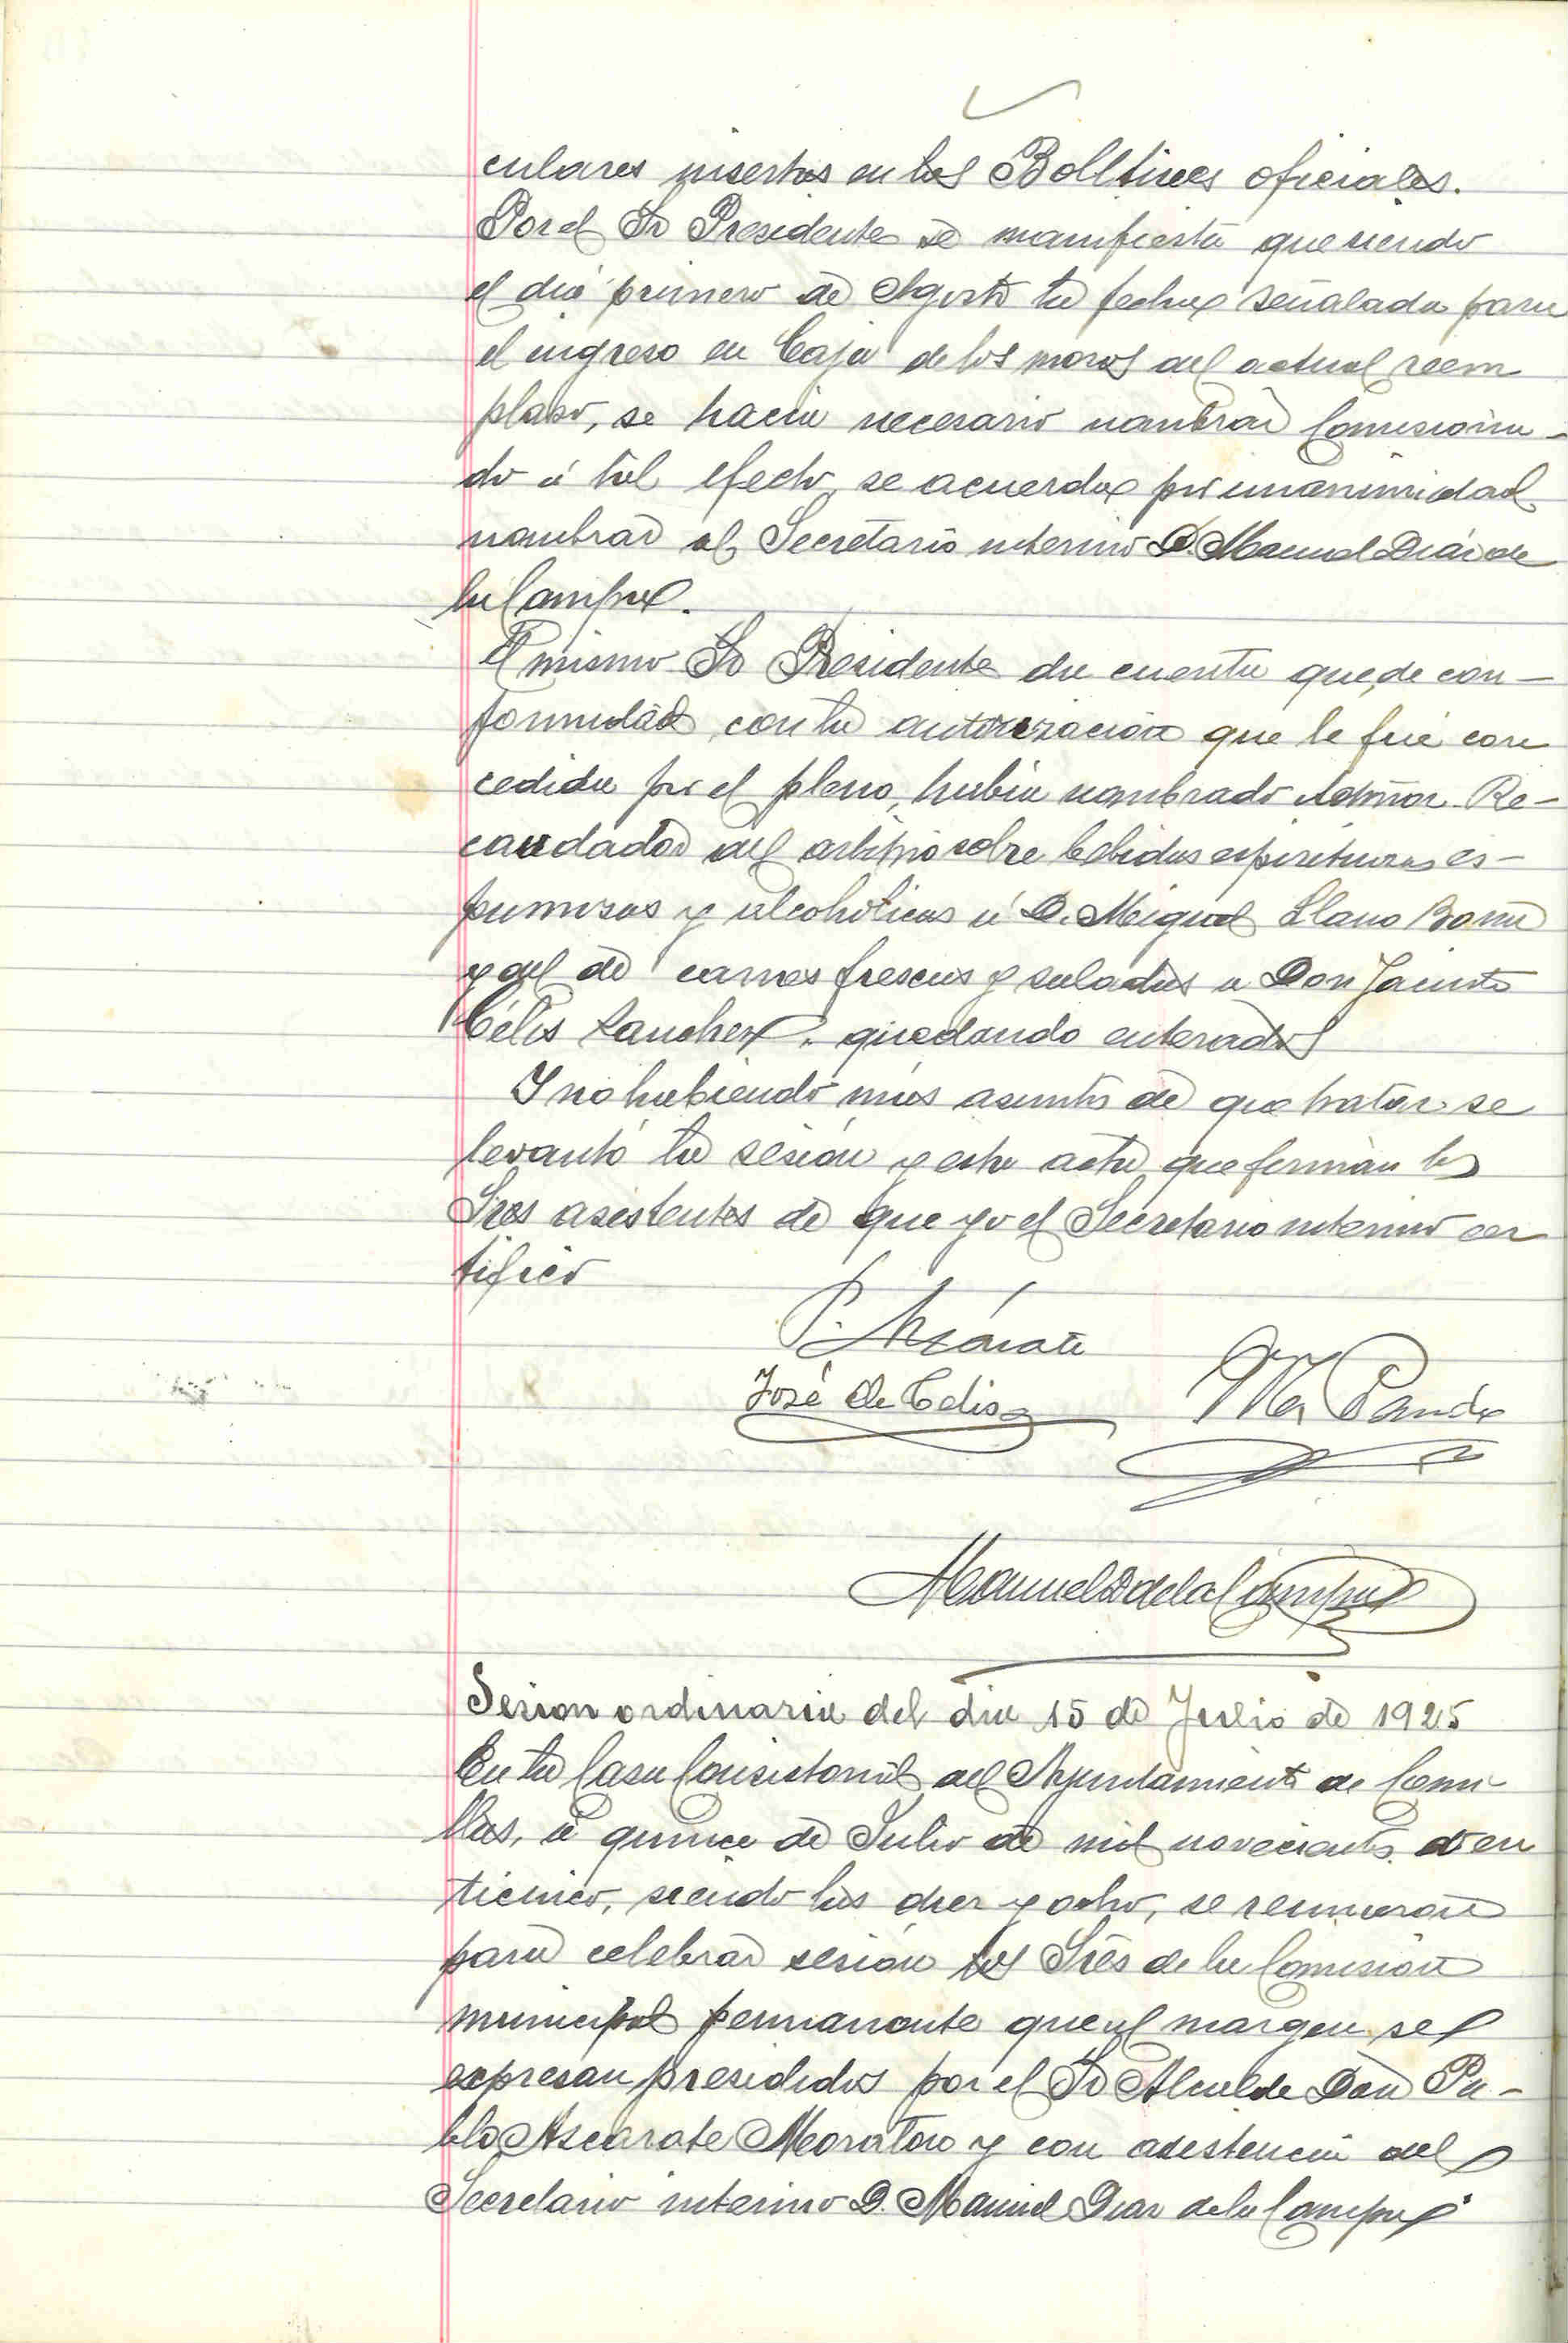 culares insertas en los Bolltines oficiales.
Por el Sr Presidente se manifiesta que siendo
el dia primero de Agosto la fecha señalada para
el ingreso en Caja de los mozos del actual reem
plazo, se hacia necesario nombrar Comisiona-
do á tal efecto, se acuerda por unanimidad
nombrar al Secretario interino D. Manuel Diaz de
la Campa.
El mismo Sr Presidente da cuenta que, de con-
formidad con la autorización que le fué con
cedida por el pleno, habia nombrado Admor. Re-
caudador del arbitrio sobre bebidas espirituosas es-
pumosas y alcoholicas á D. Miguel Llano
y al de carnes frescas y saladas a Don Jacinto
Célis Sanchez, quedando enterados
Y no habiendo más asuntos de que tratar se
levantó la sesión y esta acta que firman los
Sres asistentes de que yo el Secretario interino cer
tifico
P. Azcárate
José de Celis
Ma Pando
Manuel D de la Campa
Sesion ordinaria del dia 15 de Julio de 1925
En la Casa Consistorial del Ayuntamiento de Comi-
llas, á quince de Julio de mil novecientos vein
ticinco, siendo las diez y ocho, se reunieron
para celebrar sesión los Sres de la Comisión
municipal permanente que al margen se
expresan presididos por el Sr Alcalde Don Pa-
blo Azcarate Moratón y con asistencia del
Secretario interino D. Manuel Diaz de la Campa